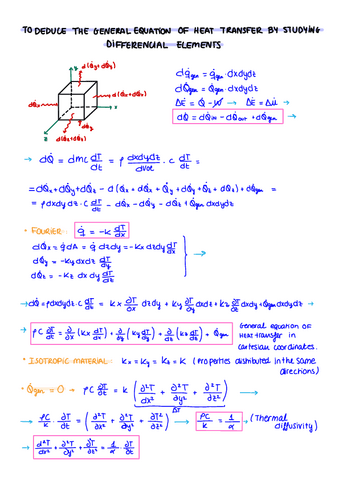 TO DEDUCE THE GENERAL EQUATION OF HEAT TRANSFER BY STUDYING
DIFFERENCIAL ELEMENTS
d(Q̇y+dQ̇y)
d(Q̇x+dQ̇x)
dQ̇x
dQ̇y
dq̇gen = q̇gen · dxdydz
dQ̇gen = q̇gen · dxdydz
ΔĖ = Q̇ - Ẇ → ΔĖ = ΔU̇ →
dQ̇ = dQ̇in - dQ̇out + dQ̇gen →
→ dQ̇ = dmC dT/dt = ρ dxdydz · C dT/dt =
dVol
= dQ̇x+dQ̇y+dQ̇z - d(Q̇x + dQ̇x + Q̇y + dQ̇y + Q̇z + dQ̇z) + dQ̇gen =
= ρ dxdydz · C dT/dt - dQ̇x - dQ̇y - dQ̇z + Q̇gen dxdydz
• FOURIER: q̇ = -k dT/dx
dQ̇x = q̇ dA = q̇ dzdy = -kx dzdy dT/dx
dQ̇y = -ky dxdz dT/dy
dQ̇z = -kz dxdy dT/dz
→ dQ̇ = ρdxdydz·C dT/dt = kx ∂T/∂x dzdy + ky ∂T/∂y dxdz + kz ∂T/∂z dxdy + Q̇gen dxdydz →
→ ρC dT/dt = ∂/∂x (kx dT/dx) + ∂/∂y (ky dT/dy) + ∂/∂z (kz dT/dz) + Q̇gen
General equation of
Heat transfer in
cartesian coordinates.
• ISOTROPIC MATERIAL: kx = ky = kz = k (Properties distributed in the same
directions)
• Q̇gen = 0 → ρC dT/dt = k (∂²T/∂x² + ∂²T/∂y² + ∂²T/∂z²) →
ΔT
→ ρC/k · ∂T/∂t = (∂²T/∂x² + ∂²T/∂y² + ∂²T/∂z²) → ρC/k = 1/α → (Thermal
diffusivity)
→ ∂²T/∂x² + ∂²T/∂y² + ∂²T/∂z² = 1/α ∂T/∂t